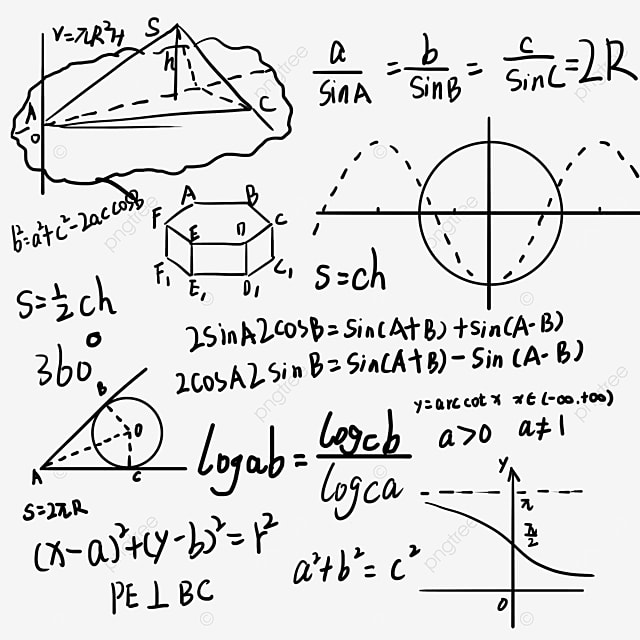 V=πR²H
S
h
A
O
C
a/SinA = b/SinB = c/SinC = 2R
b²=a²+c²-2ac cosB
A B
F C
E D
F₁ C₁
E₁ D₁
S=ch
S=½ch
360°
2SinA2cosB=Sin(A+B)+Sin(A-B)
2cosA2SinB=Sin(A+B)-Sin(A-B)
B
O
A
C
y=arc cot x x∈(-∞,+∞)
a>0 a≠1
logab = logcb/logca
S=2πR
(x-a)²+(y-b)²=r²
a²+b²=c²
PE⊥BC
Y
π
π/2
O
pngtree